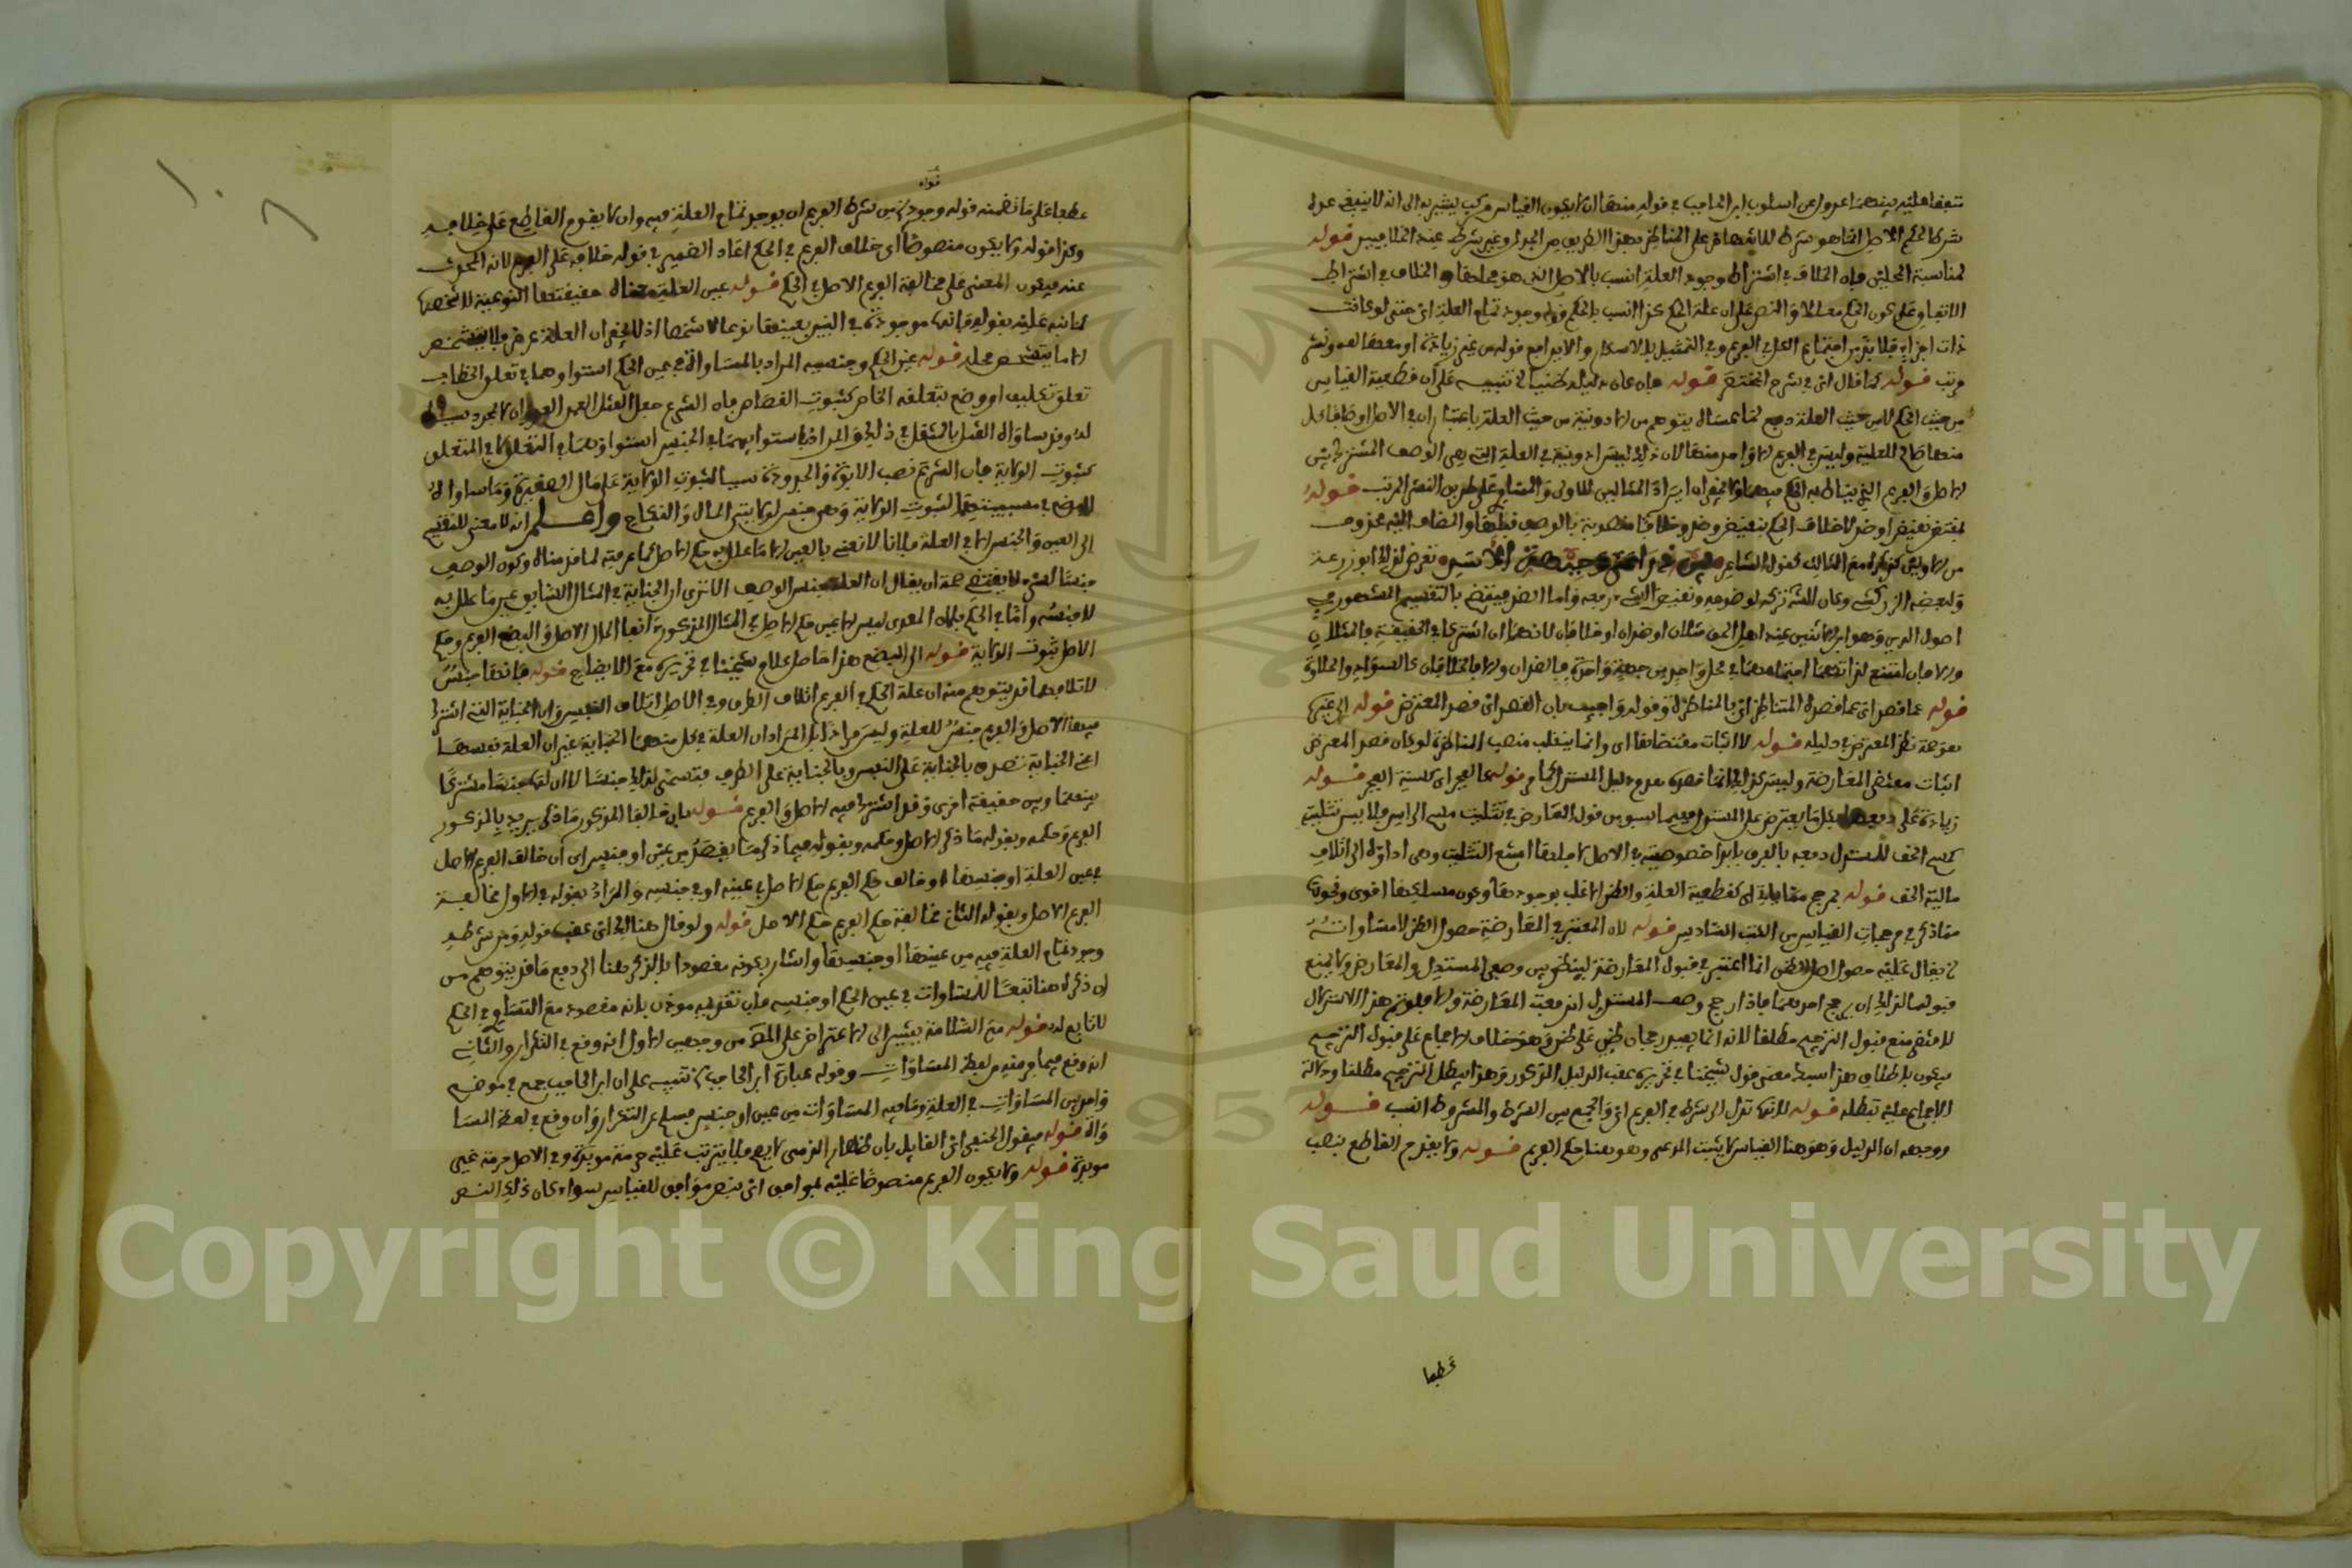 شرط الحكم الاصل انما هو شرط للانتهاض على المناظر بهذا الطريق من الجدل وغير شرط عند الخلافيين قوله
لمناسبة المحلين فان الخلاف في اشتراط وجود العلة انسب بالاصل الذي هو محلها والخلاف في اشتراط
الاتفاق على كون الحكم معللا والنص على ان علة الحكم كذا انسب بالحكم قوله وجود تمام العلة اي حتى لو كانت
ذات اجزاء فلا بد من اجتماع الكل في الفرع وفي التمثيل بالاسكار والايذا مع قوله من غير زيادة او معها لف ونشر
مرتب قوله كما قال اي في شرح المختصر قوله فان كان دليله ظنيا الخ تنبيه على ان قطعية القياس
من حيث الحكم لا من حيث العلة دفع لما عساه يتوهم من الادونية من حيث العلة باعتبار ان في الاصل اوصافا كل
منها صالح للعلية وليس في الفرع الا واحد منها لان ذلك ليس ادونية في العلة التي هي الوصف المشترك بين
الاصل والفرع الذي يناط به الحكم فيهما ولا يخفى ان ايراد المثالين للاولى والمساوي على طريق النشر المرتب قوله
لمقتض نقيض او ضد لا خلاف الحكم بنقيض وضد وخلاف منصوبة بالوصف قبلها والمضاف اليه محذوف
من الاولين كذكره مع الثالث كقول الشاعر تعرض لذلك ابو زرعة
ولبعضه الزركشي وكان الشارح تركه لوضوحه ونقيض الشيء رفعه واما الضد فينقض بالتقسيم المشهور في
اصول الدين وهو ان الاثنين عند اهل الحق مثلان او ضدان او خلافان لانهما ان اشتركا في الحقيقة فالمثلان
والا فان امتنع لذاتهما اجتماعهما في محل واحد من جهة واحدة فالضدان والا فالخلافان كالسواد والحلاوة
قوله عما قصد اي عما قصده المتناظران بالمناظرة وقوله واجيب بان القصد اي قصد المعترض قوله الى غيرها
معرفة نظر المعترض في دليله قوله لا اثبات مقتضاها اي وانما ينقلب منصب المناظرة لو كان قصد المعترض
اثبات مقتضى المعارضة وليس كذلك انما قصده هدم دليل المستدل كما مر قوله كالعجز اي كنسبة العجز قوله
زيادة على دفعها بكل ما يعترض على المستدل فيما سبق من قول المعارض في تثليث مسح الراس فلا يسن تثليثه
كمسح الخف للمستدل دفعه بالفرق بابداء خصوصية في الاصل لاجلها امتنع التثليث وهي اداؤه الى اتلاف
مالية الخف قوله بمرجح مقابله اي كقطعية العلة والظن الاغلب بوجودها وكون مسلكها اقوى ونحوها
مما ذكر في مرجحات القياس من الكتب السادس قوله لان المعتبر في المعارضة حصول الظن لا مساواته
لا يقال عليه حصول اصل الظن انما اعتبر في قبول المعارضة لينظر بين وصفي المستدل والمعارض ولا يمنع
قبولها لذلك ان يرجح احدهما فاذا رجح وصف المستدل اندفعت المعارضة والا فلو تم هذا الاستدلال
لاقتضى منع قبول الترجيح مطلقا لانه انما يفيد رجحان ظن على ظن وهو خلاف الاجماع على قبول الترجيح
فيكون باطلا هذا بسط معنى قول شيخنا في تحريره عقب الدليل المذكور وهذا يبطل الترجيح مطلقا ودلالة
الاجماع عليه تبطله قوله لانها تؤل الى شرط في الفرع اي والجمع بين الشرط والمشروط انسب قوله
ووجهه ان الدليل وهو هنا القياس لا يثبت المدعى وهو هنا حكم الفرع قوله ولا يقوم القاطع بنصب
عطفا
قوله
عطفا على ما تضمنه قوله وجود من شرط الفرع ان يوجد تمام العلة فيه وان لا يقوم القاطع على خلافه
وكذا قوله ولا يكون منصوصا اي خلاف الفرع في الحكم اعاد الضمير في قوله خلافه على الفرع لانه المحدث
عنه فيكون المعنى على مخالفة الفرع الاصل في الحكم قوله عين العلة حقيقتها النوعية لا شخصها
كما نبه عليه بقوله فانها موجودة في النبيذ بعينها نوعا لا شخصا اذ لا يخفى ان العلة عرض فلا يتشخص
الا ما يتشخص محله قوله عين الحكم وجنسه المراد بالمساواة في عين الحكم استواؤهما في تعلق الخطاب
تعلق تكليف او وضع بتعلقه الخاص كثبوت القصاص فان الشرع جعل القتل العمد العدوان
له وقد ساواه القتل بالمثقل في ذلك والمراد باستوائهما في الجنس استواؤهما في التعلق لا في المتعلق
كثبوت الولاية فان الشرع نصب الابوة والجدودة سببا لثبوت الولاية على مال الصغيرة وما ساواه
البضع في سببيتها لثبوت الولاية وهي جنس لولايتي المال والنكاح واعلم انه لا معنى للتقسيم
الى العين والجنس الا في العلة فلانا لا نعني بالعين الا ما علل به حكم الاصل كما عرفته لما قدمناه وكون الوصف
جنسا لشيء لا يقتضي صحة ان يقال ان العلة جنس الوصف الا ترى ان الجناية في المثال السابق عين ما علل به
لا جنسه واما في الحكم فلان المعدى ليس الا عين حكم الاصل في المثال المذكورة انها المال الاصل والبضع الفرع وحكم
الاصل ثبوت الولاية قوله الى البضع هذا حاصل كلام شيخنا في تحريره مع الايضاح قوله فانها جنس
لاتلافهما قد يتوهم منه ان علة الحكم في الفرع اتلاف الطرف وفي الاصل اتلاف النفس وان الجناية التي اشترك
فيها الاصل والفرع جنس للعلة وليس مرادا بل المراد ان العلة في كل منهما الجناية غير ان العلة نفسها
اعني الجناية تصدق بالجناية على النفس وبالجناية على الطرف فتسمى لذلك جنسا لا ان لها جنسا مشتركا
بينها وبين حقيقة اخرى وقد اشترك فيه الاصل والفرع قوله فان خالفا المذكور ما ذكر يريد بالمذكور
الفرع وحكمه وبقوله ما ذكر الاصل وحكمه وبقوله فيما ذكر ما يقصد من عين او جنس اي ان خالف الفرع الاصل
في عين العلة او جنسها او خالف حكم الفرع حكم الاصل في عينه او في جنسه والمراد بقوله في الاول مخالفة
الفرع الاصل وبقوله الثاني مخالفة حكم الفرع حكم الاصل قوله ولو قال هنالك اي عقب قوله ومن شرطه
وجود تمام العلة فيه من عينها او جنسها واشار بكونه مقصودا بالذكر هنا الى دفع ما قد يتوهم من
ان ذكره هنا تبعا للمساوات في عين الحكم او جنسه فان تقديمه مؤذن بانه مقصود مع التساوي في الحكم
لا تابع له قوله مع السلامة يشير الى الاعتراض على المصنف من وجهين الاول انه وقع في التكرار والثاني
انه وقع فيما فر منه من لفظ المساوات وقوله عبارة ابن الحاجب تنبيه على ان ابن الحاجب جمع في موضع
واحد بين المساوات في العلة وما فيه المساوات من عين او جنس فسلم عن التكرار وان وقع في لفظ المسا
واة قوله فيقول الحنفي اي القايل بان ظهار الذمي لا يصح فلا يترتب عليه حرمة مؤبدة وفي الاصل حرمة غير
مؤبدة قوله ولا يكون الفرع منصوصا عليه بموافق اي بنص موافق للقياس سواء كان ذلك النص
Copyright © King Saud University